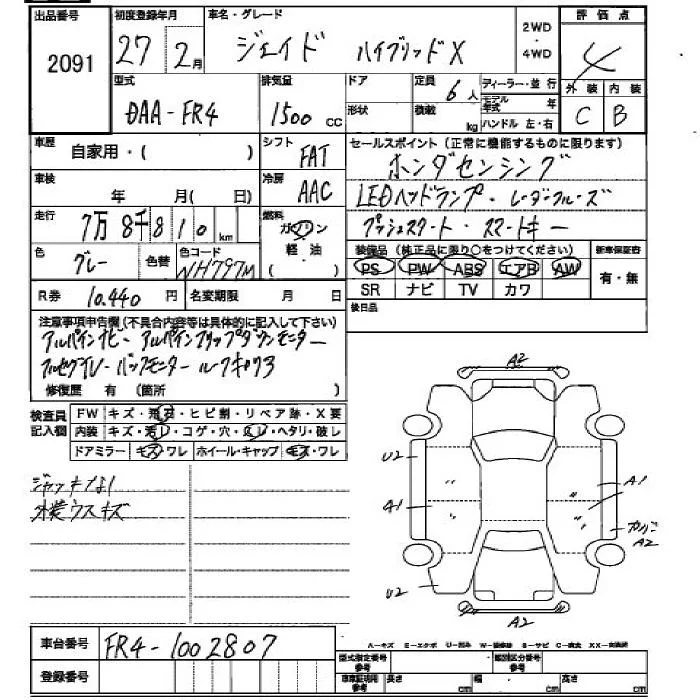 出品番号 初度登録年月 車名・グレード 2WD 評価点
2091 27 2月 ジェイド ハイブリッドX ・4WD 4
型式 排気量 ドア 定員 6人 ディーラー・並行 外装 内装
DAA-FR4 1500cc 形状 積載 kg モデル年式 年 C B
ハンドル 左・右
車歴 自家用・( ) シフト FAT セールスポイント(正常に機能するものに限ります)
ホンダセンシング
車検 年 月(日) 冷房 AAC LEDヘッドランプ・レーダークルーズ
走行 7万8千810km 燃料 ガソリン プッシュスタート・スマートキー
軽油
( )
色 グレー 色替 色コード NH797M 装備品(純正品に限り○をつけてください) 新車保証書
PS PW ABS エアB AW 有・無
SR ナビ TV カワ
R券 10,440円 名変期限 月 日 後日品
注意事項申告欄(不具合内容等は具体的に記入して下さい)
アルパインナビー アルパインフリップダウンモニター
フルセグTV バックモニター ルーフキャリア
修復歴 有(箇所 )
検査員記入欄 FW キズ・飛石・ヒビ割・リペア跡・X要
内装 キズ・汚れ・コゲ・穴・ ・ヘタリ・破レ
ドアミラー キズ・ワレ ホイール・キャップ キズ・ワレ
ジャッキなし
外装ウスキズ
A2
U2
A1
A1
カバー
A2
U2
A2
車台番号 FR4-1002807
A-キズ E-エクボ
登録番号 型式指定番号 参考 類別区分番号 参考
車庫証明用 参考 長さ cm 幅 cm 高さ cm